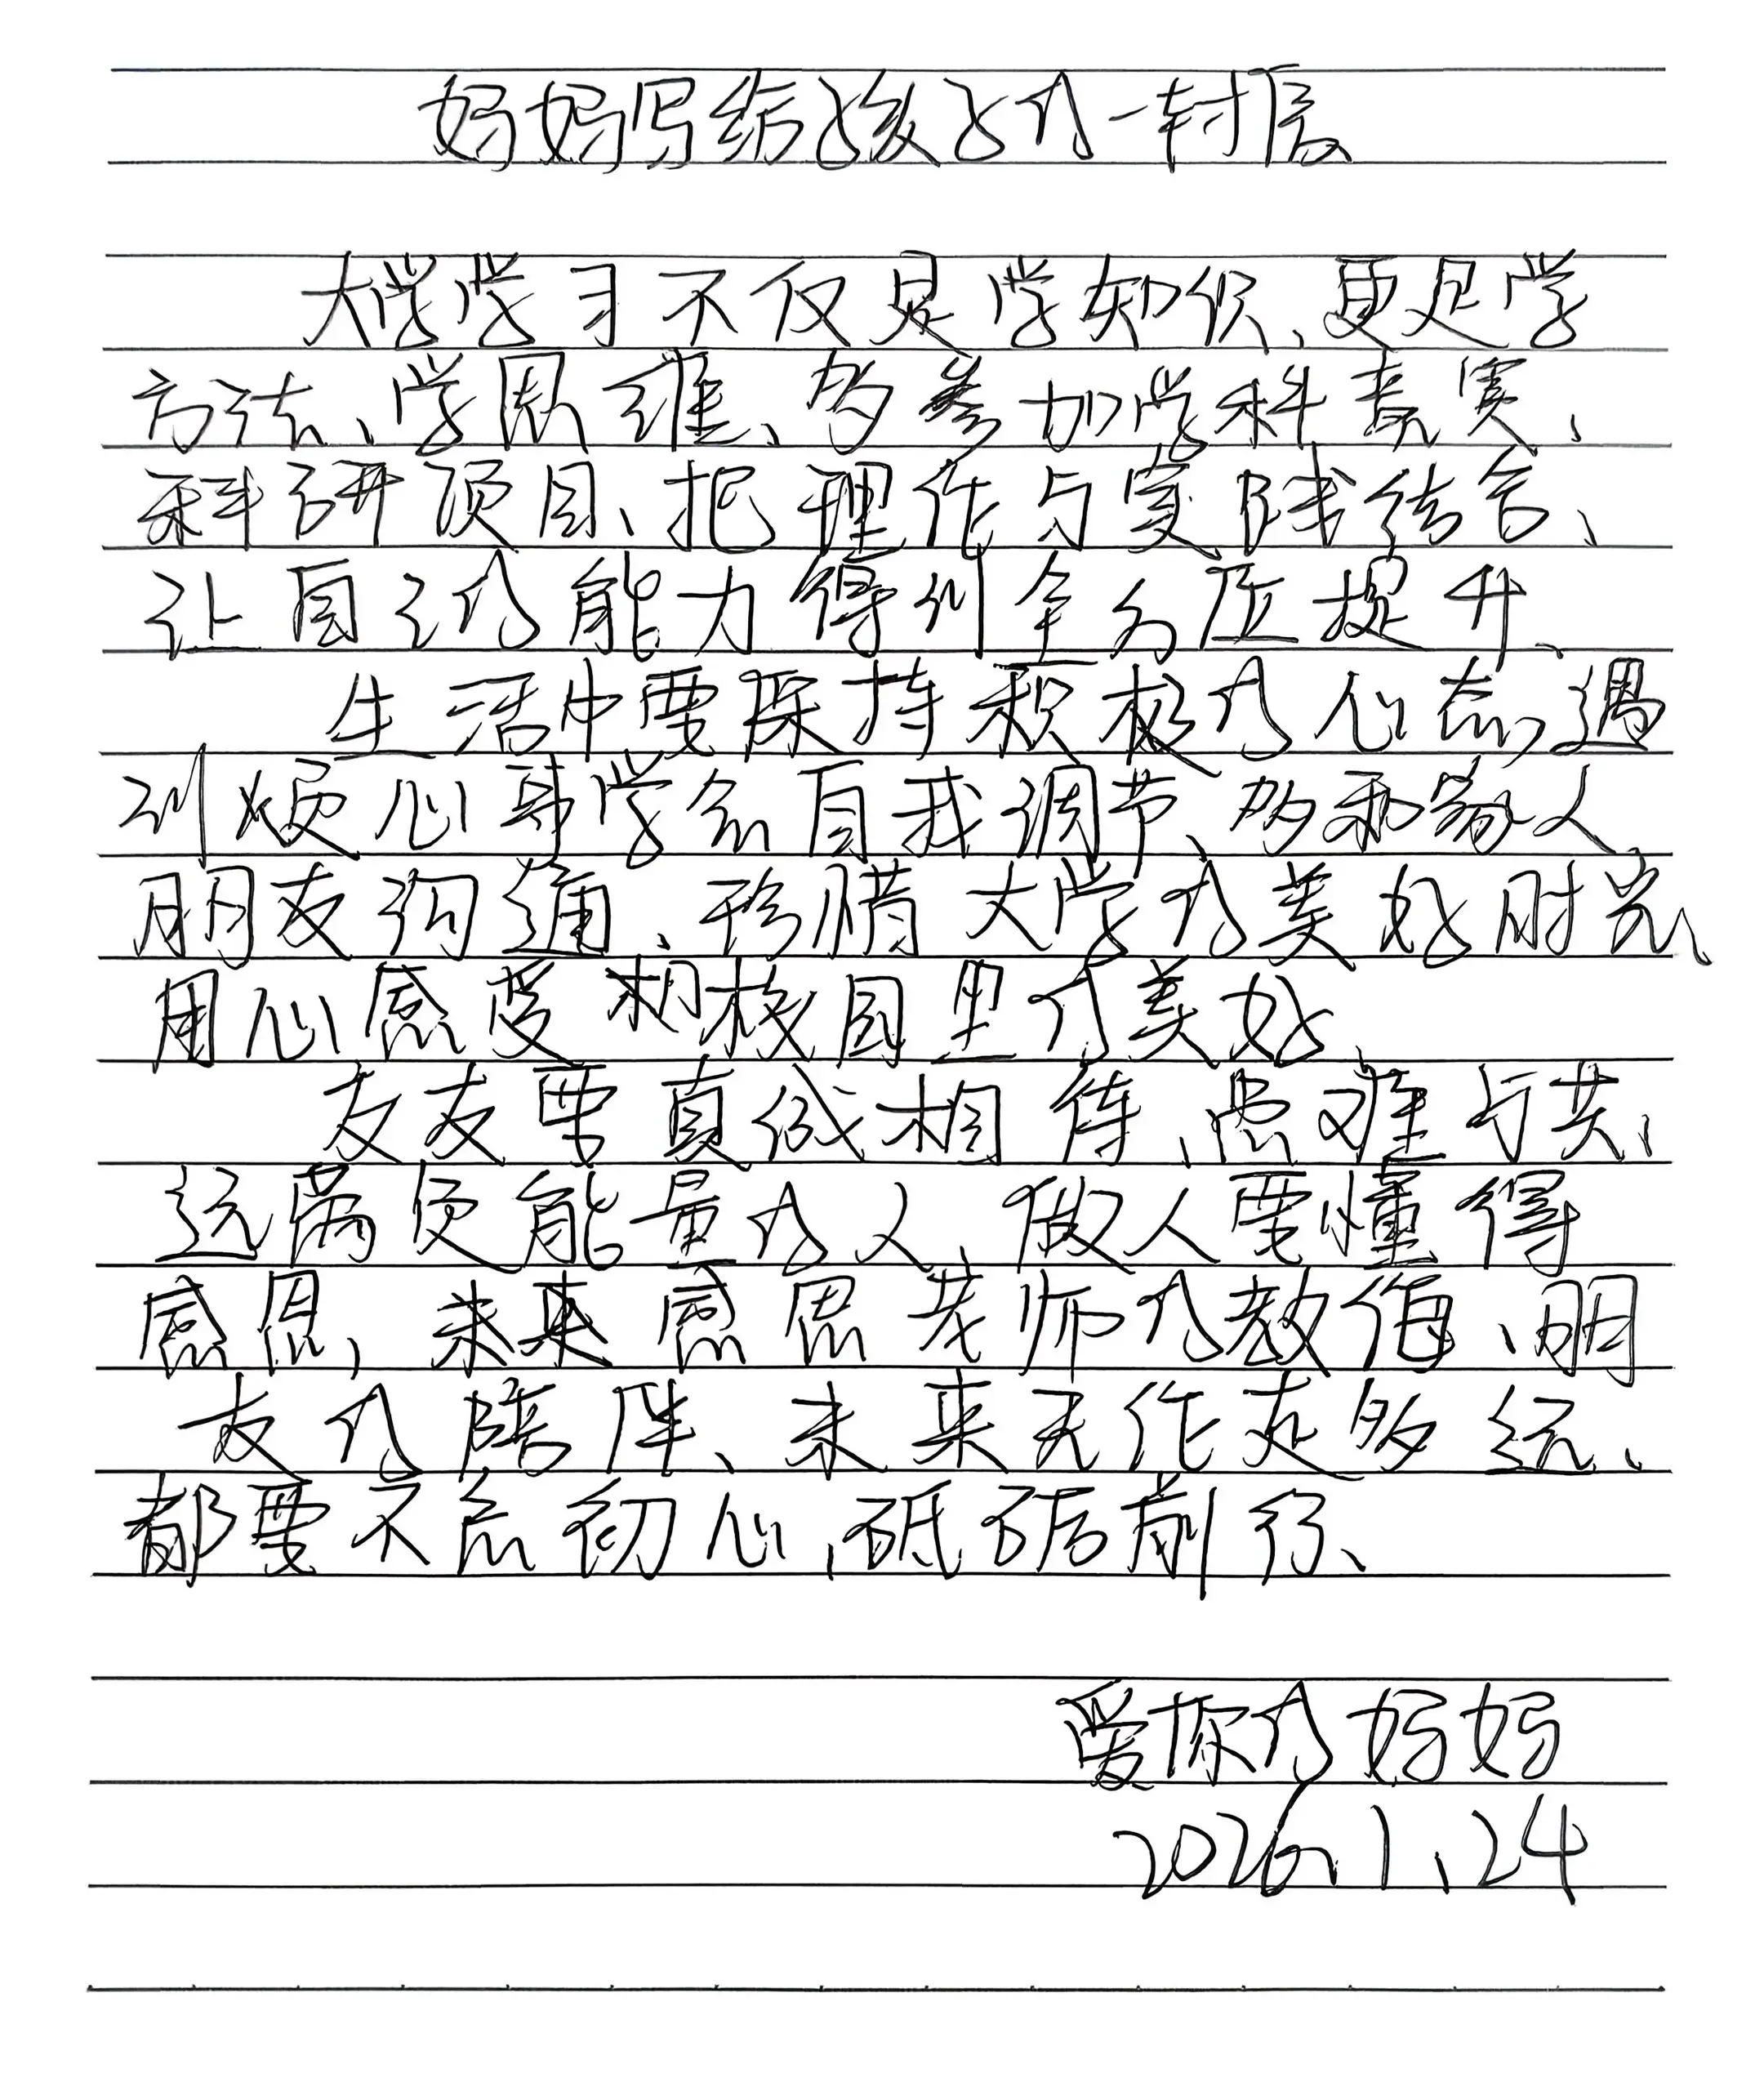 妈妈写给孩子的一封信
大学学习不仅是学知识、更是学
方法、学思维、多参加学科竞赛、
科研项目、把理论与实践结合、
让自己的能力得到全方位提升、
生活中要保持积极的心态,遇
到烦心事学会自我调节、多和家人
朋友沟通、珍惜大学的美好时光、
用心感受校园里的美好、
交友要真诚相待、患难与共、
远离负能量的人、做人要懂得
感恩,未来感恩老师的教诲、朋
友的陪伴、未来无论走多远、
都要不忘初心、砥砺前行、
爱你的妈妈
2026.1.24